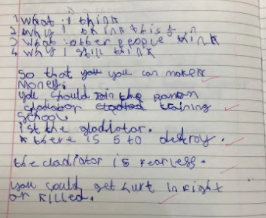 1 What I think
2 Why I think this
3 What other people think
4 Why I still think
So that you you can make
money.
you should join the
gladiator training
School.
1st the gladiator.
there is 5 to destroy.
the Gladiator is fearless.
you could get hurt in fight
or killed.